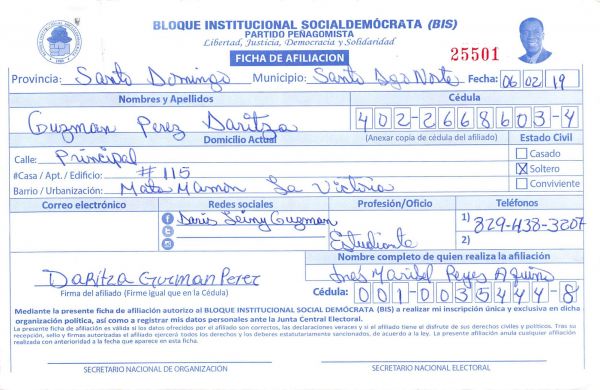 BLOQUE INSTITUCIONAL SOCIALDEMÓCRATA (BIS)
PARTIDO PEÑAGOMISTA
Libertad, Justicia, Democracia y Solidaridad
FICHA DE AFILIACION
25501
Provincia: Santo Domingo Municipio: Santo Dgo Norte Fecha: 06 02 19
Nombres y Apellidos Cédula
Guzman Perez Daritza 402-2668603-4
Domicilio Actual (Anexar copia de cédula del afiliado) Estado Civil
Calle: Principal Casado
#Casa / Apt. / Edificio: #115 X Soltero
Barrio / Urbanización: Mata Mamon La Victoria Conviviente
Correo electrónico Redes sociales Profesión/Oficio Teléfonos
Daris Leiny Guzman Estudiante 1) 829-438-3207
2)
Nombre completo de quien realiza la afiliación
Daritza Guzman Perez Ines Maribel Reyes Aquino
Firma del afiliado (Firme igual que en la Cédula) Cédula: 001-0035444-8
Mediante la presente ficha de afiliación autorizo al BLOQUE INSTITUCIONAL SOCIAL DEMÓCRATA (BIS) a realizar mi inscripción única y exclusiva en dicha
organización política, así como a registrar mis datos personales ante la Junta Central Electoral.
La presente ficha de afiliación es válida si los datos ofrecidos por el afiliado son correctos, las declaraciones veraces y si el afiliado tiene el disfrute de sus derechos civiles y políticos. Tras su
recepción, sello y firmas autorizadas el afiliado ejercerá todos los derechos y los deberes estatutariamente sancionados, de acuerdo a la ley. La presente afiliación anula cualquier afiliación
realizada con anterioridad a la fecha que aparece en esta ficha.
SECRETARIO NACIONAL DE ORGANIZACIÓN SECRETARIO NACIONAL ELECTORAL